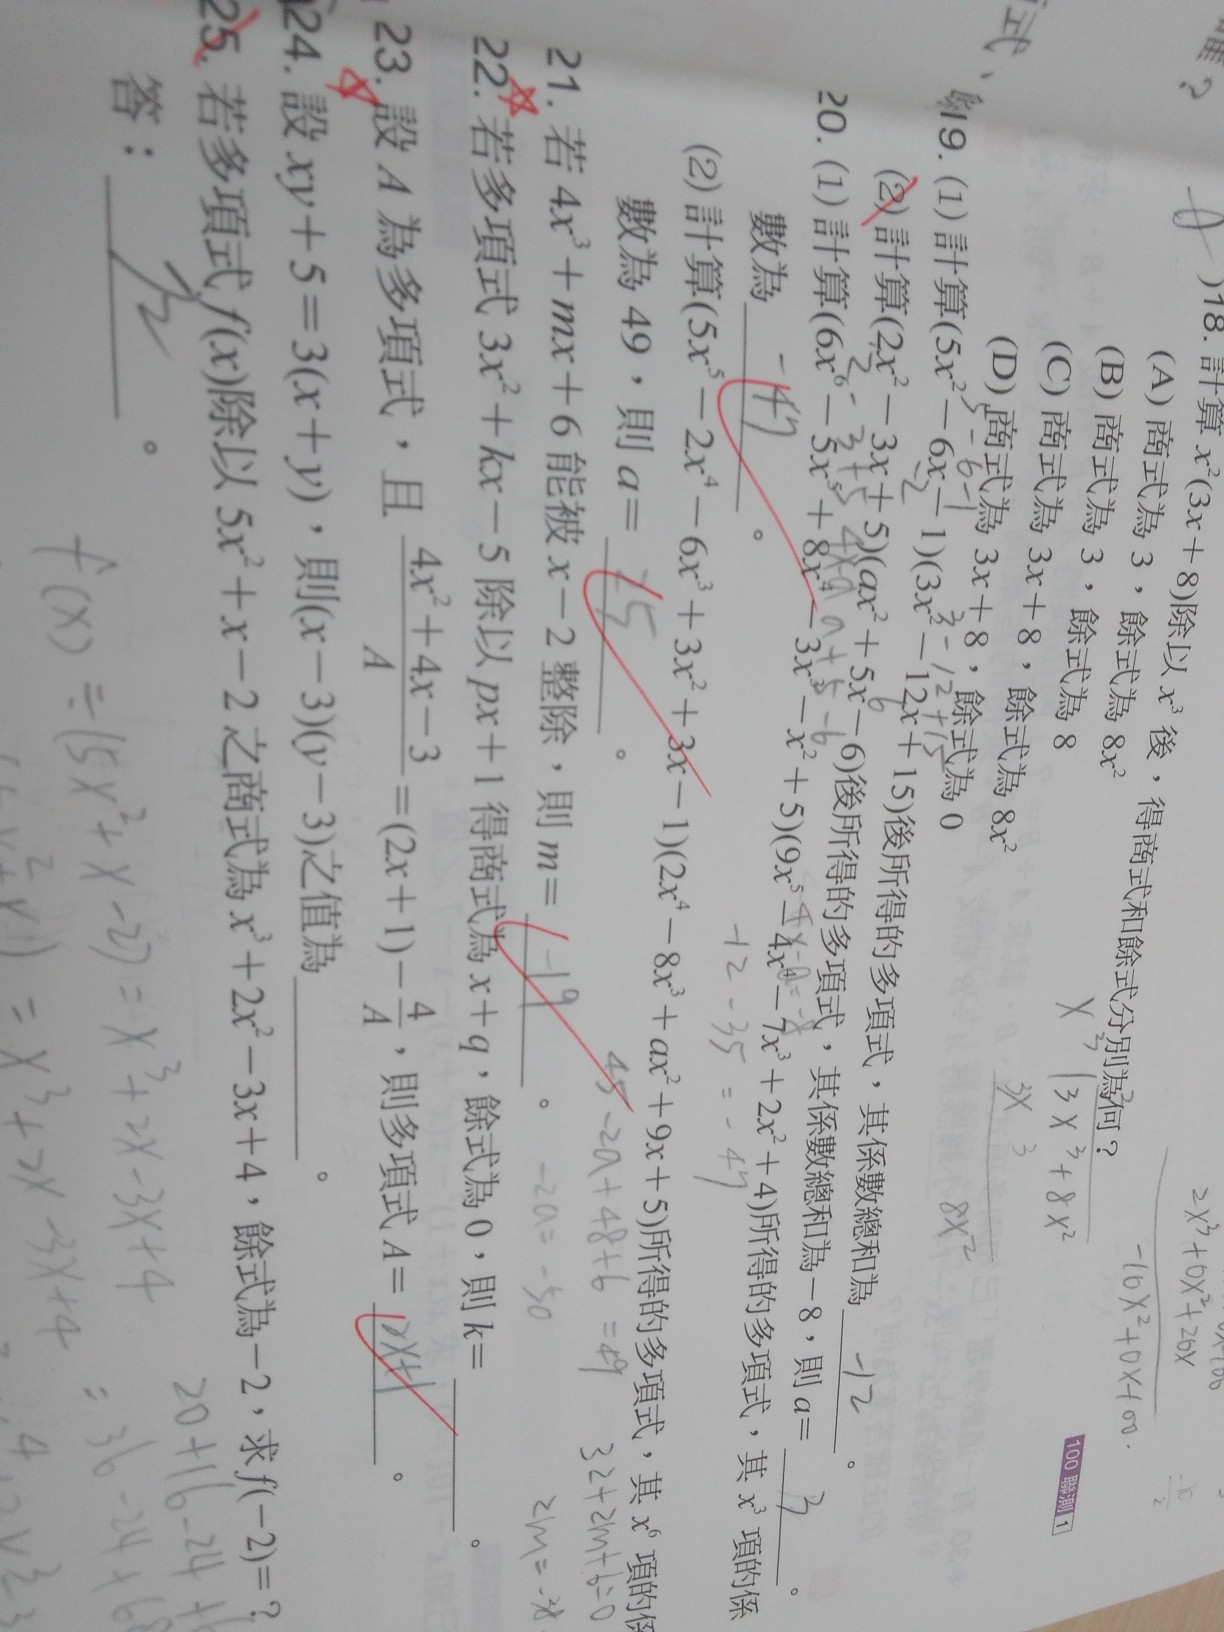 18. 計算 x²(3x+8)除以 x³ 後，得商式和餘式分別為何？
(A) 商式為 3，餘式為 8x²
(B) 商式為 3，餘式為 8
(C) 商式為 3x+8，餘式為 8x²
(D) 商式為 3x+8，餘式為 0
100 聯測 1
19. (1) 計算(5x²－6x－1)(3x²－12x＋15)後所得的多項式，其係數總和為 -12 。
(2) 計算(2x²－3x＋5)(ax²＋5x－6)後所得的多項式，其係數總和為－8，則 a＝ 3 。
20. (1) 計算(6x⁶－5x⁵＋8x⁴－3x³－x²＋5)(9x⁵－4x⁴－7x³＋2x²＋4)所得的多項式，其 x³ 項的係
數為 -47 。
(2) 計算(5x⁵－2x⁴－6x³＋3x²＋3x－1)(2x⁴－8x³＋ax²＋9x＋5)所得的多項式，其 x⁶ 項的係
數為 49，則 a＝ 。
21. 若 4x³＋mx＋6 能被 x－2 整除，則 m＝ -19 。
22. 若多項式 3x²＋kx－5 除以 px＋1 得商式為 x＋q，餘式為 0，則 k＝ 。
23. 設 A 為多項式，且 (4x²＋4x－3)/A＝(2x＋1)－4/A，則多項式 A＝ 2x+1 。
24. 設 xy＋5＝3(x＋y)，則(x－3)(y－3)之值為 。
25. 若多項式 f(x)除以 5x²＋x－2 之商式為 x³＋2x²－3x＋4，餘式為－2，求 f(－2)＝？
答： 。
x³ 3x³+8x²
3x³
8x²
2x³+0x²+26x
-10x²+0x+00
-12-35=-47
45-2a+48+6=49
-2a=-50
32+2m+6=0
f(x)=(5x²+x-2)=x³+2x-3x+4
20+16-24
=36-24+